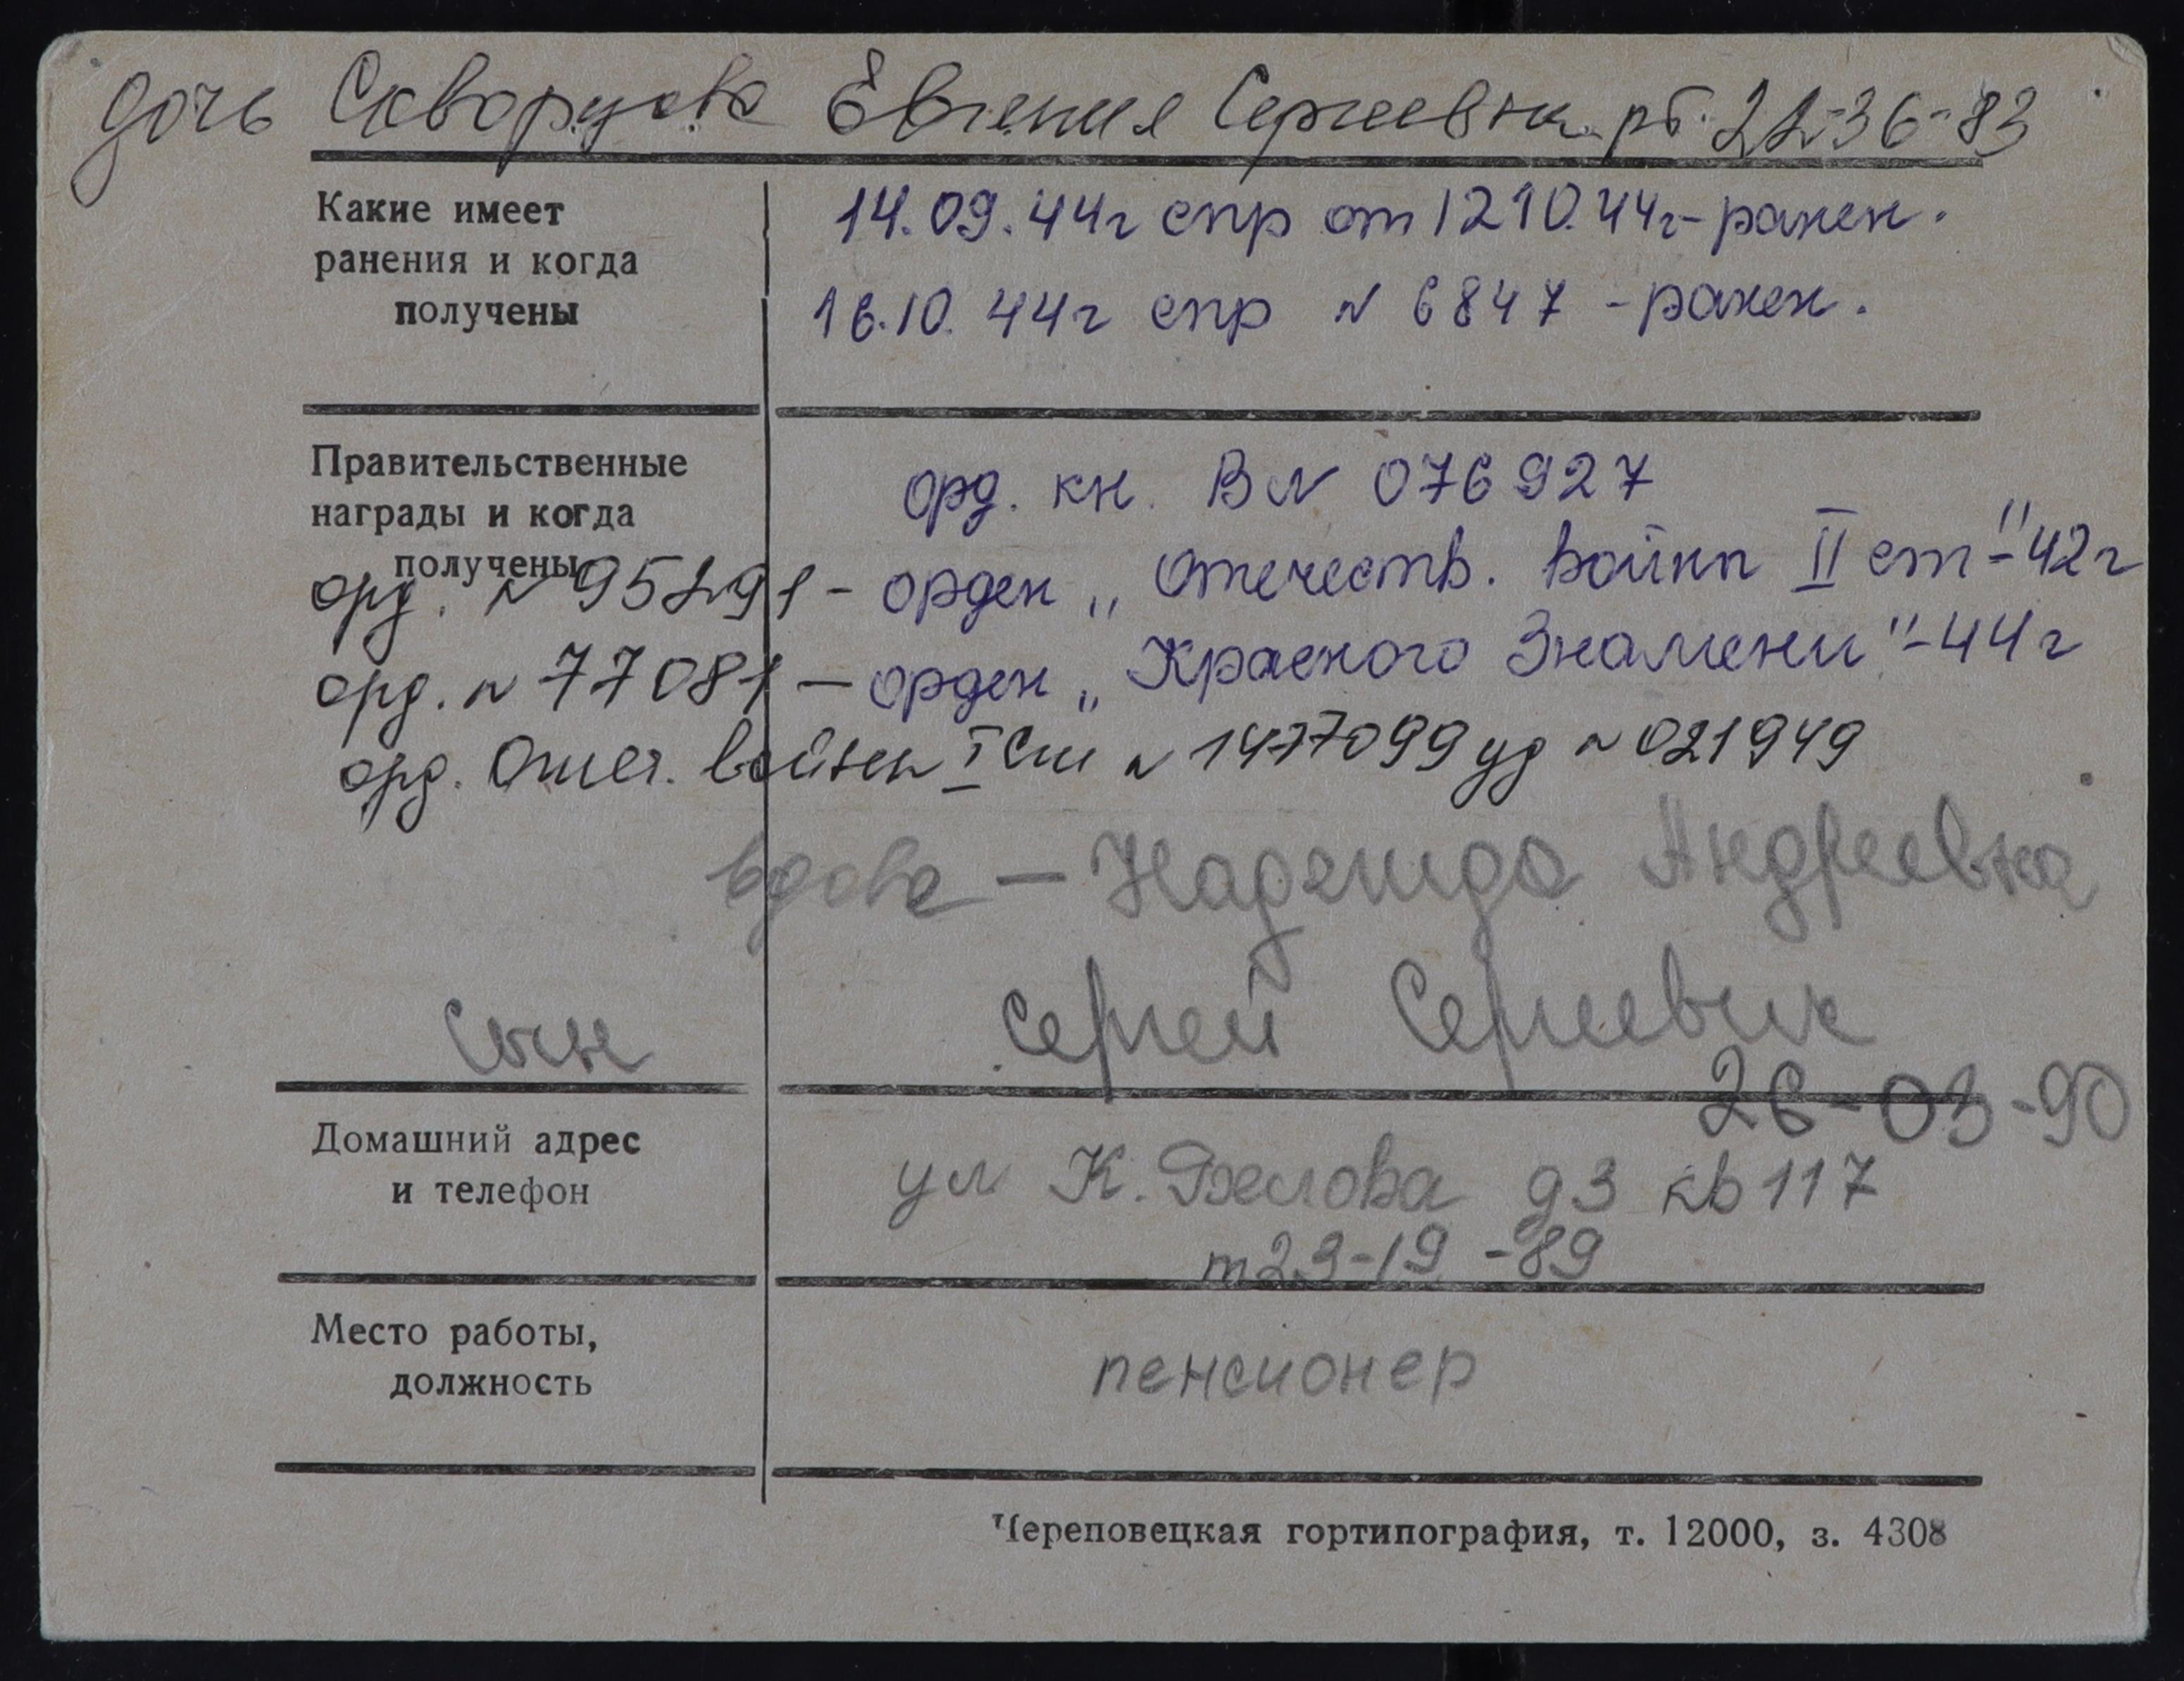 дочь Скворцова Евгения Сергеевна рб. 22-36-83
Какие имеет
ранения и когда
получены
14.09.44г спр от 12 10.44г - ранен.
16.10.44г спр № 6847 - ранен.
Правительственные
награды и когда
получены
орд. кн. В № 076927
орд. № 95291 - орден „Отечеств. войны II ст" - 42г
орд. № 77081 — орден „Красного Знамени" - 44г
орд. Отеч. войны I ст № 1477099 уд № 021949
вдова — Надежда Андреевна
Сын Сергей Сергеевич
26-03-90
Домашний адрес
и телефон
ул К. Белова д 3 кв 117
т 23-19-89
Место работы,
должность
пенсионер
Череповецкая гортипография, т. 12000, з. 4308